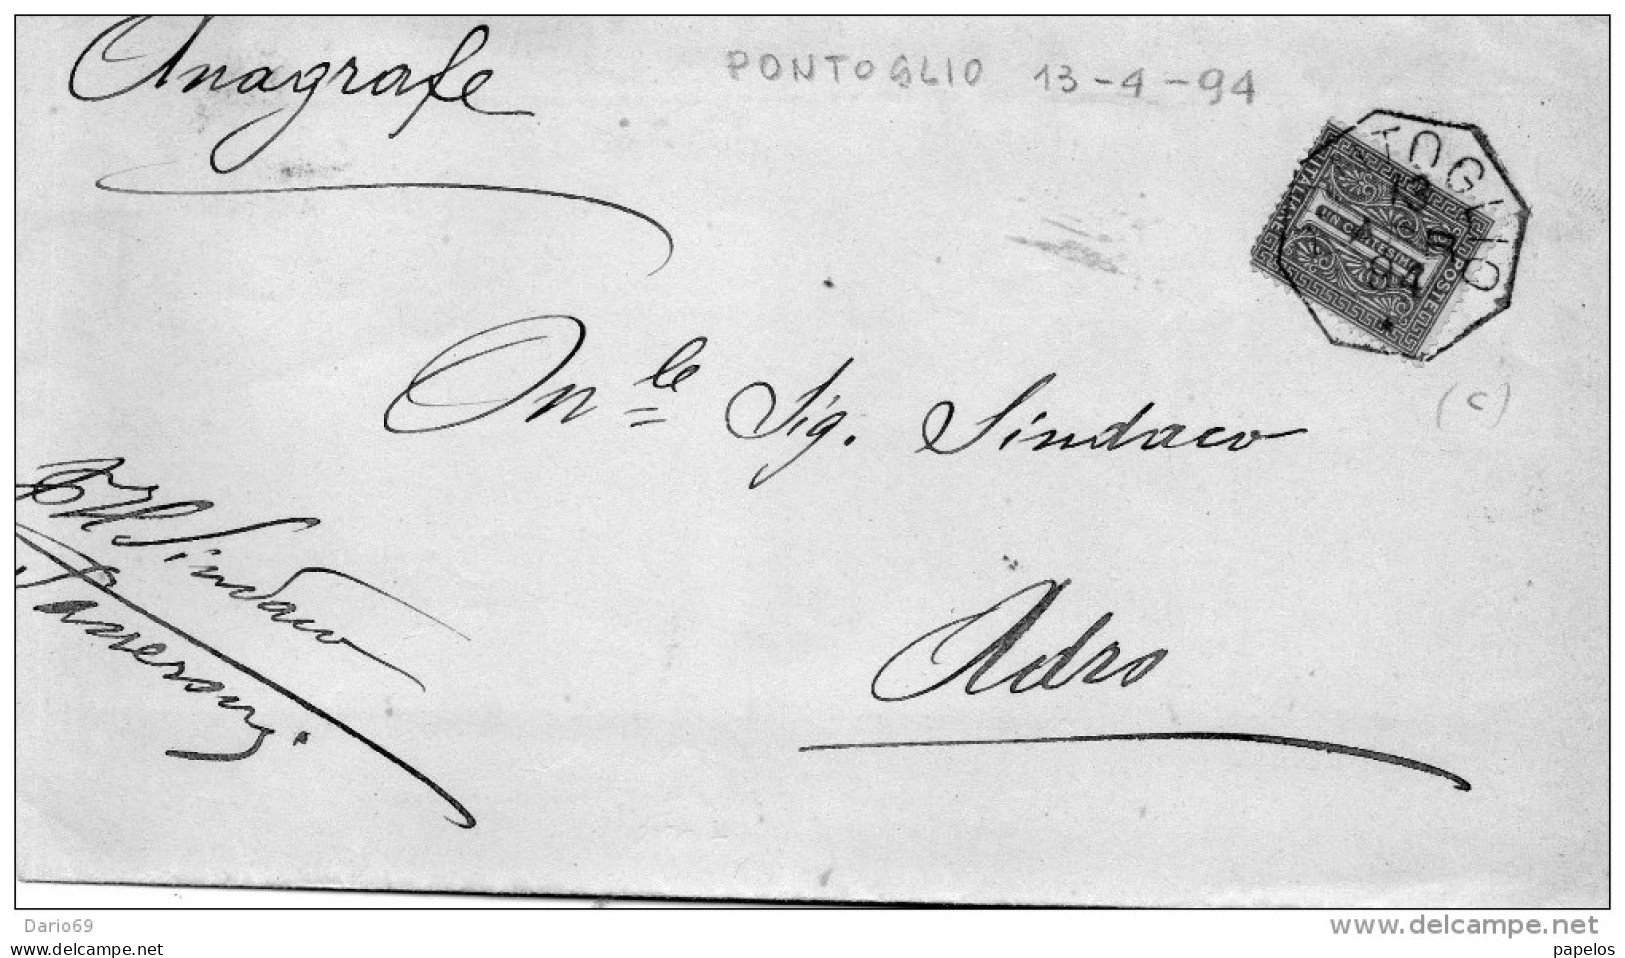 Anagrafe
PONTOGLIO 13-4-94
TOGLIO
13
94
ITALIANE
UN CENTESIMO
POSTE
(C)
On.le Sig. Sindaco
Il Sindaco
Adro
Dario69
delcampe.net
www.delcampe.net
papelos